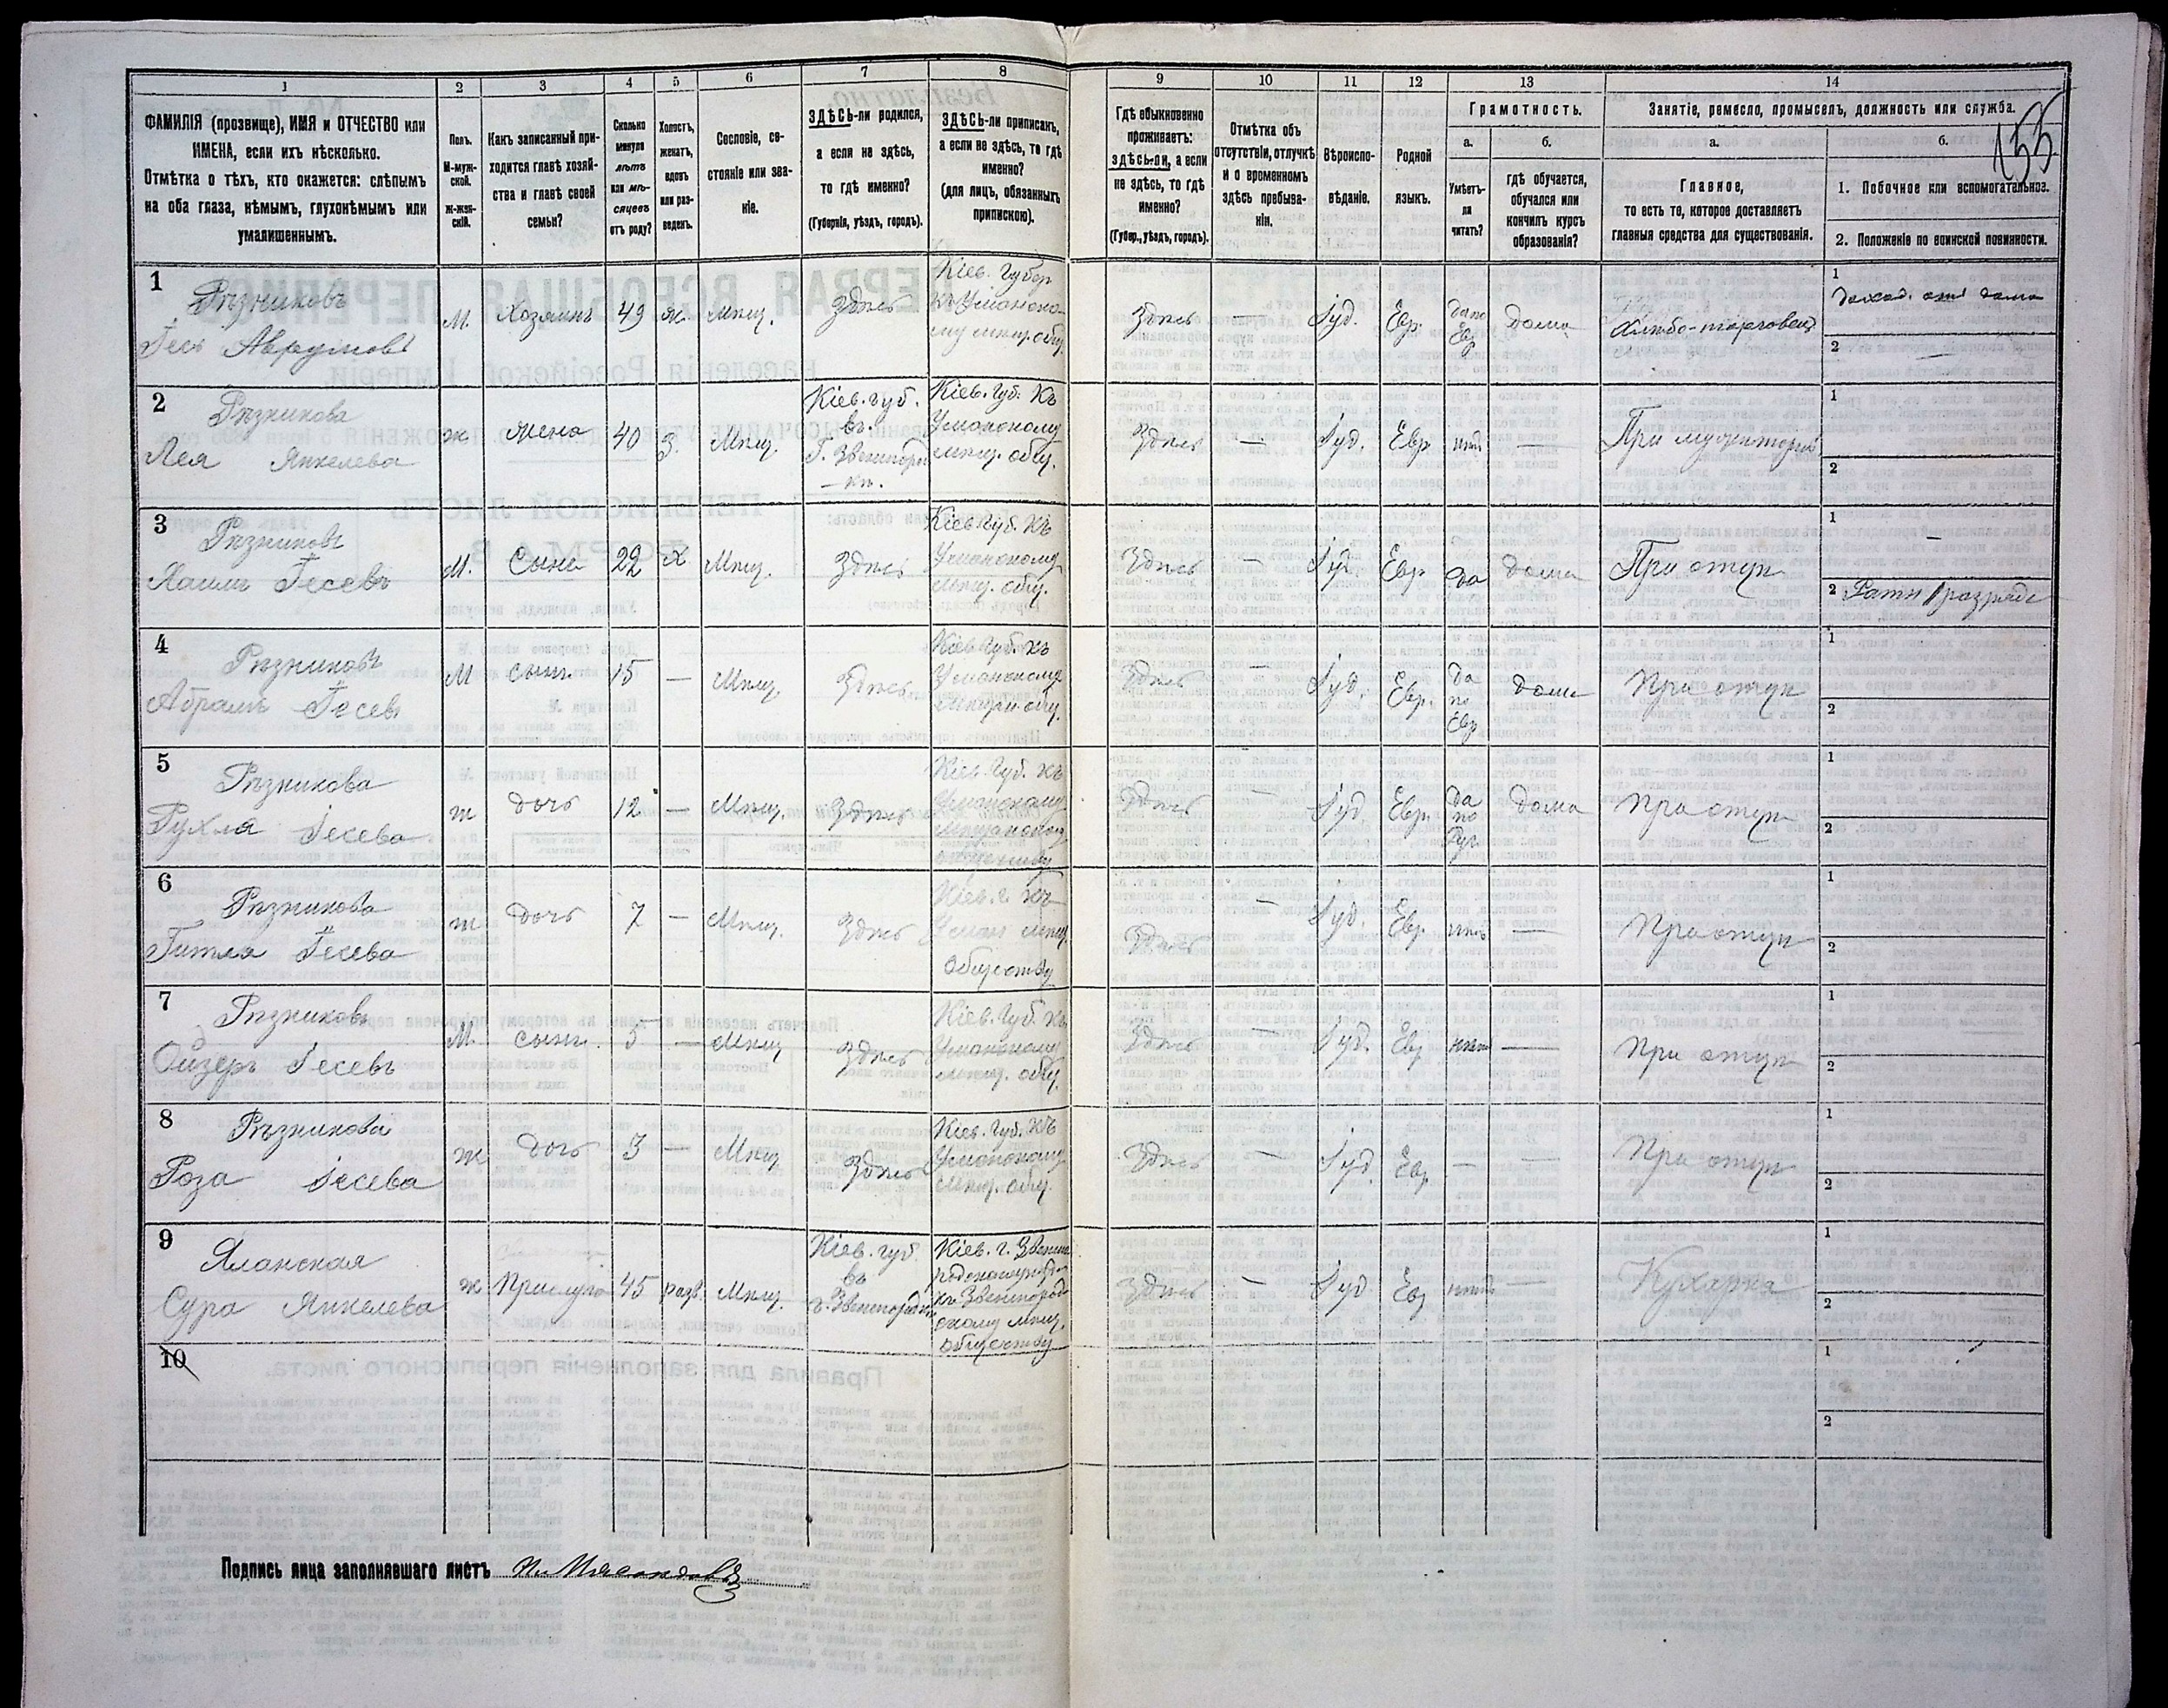 1 2 3 4 5 6 7 8 9 10 11 12 13 14
ФАМИЛІЯ (прозвище), ИМЯ и ОТЧЕСТВО или
ИМЕНА, если ихъ нѣсколько.
Отмѣтка о тѣхъ, кто окажется: слѣпымъ
на оба глаза, нѣмымъ, глухонѣмымъ или
умалишеннымъ.
Полъ.
М-муж-
ской.
Ж-жен-
скій.
Какъ записанный при-
ходится главѣ хозяй-
ства и главѣ своей
семьи?
Сколько
минуло
лѣтъ
или мѣ-
сяцевъ
отъ роду?
Холостъ,
женатъ,
вдовъ
или раз-
веденъ.
Сословіе, со-
стояніе или зва-
ніе.
ЗДѢСЬ-ли родился,
а если не здѣсь,
то гдѣ именно?
(Губернія, уѣздъ, городъ).
ЗДѢСЬ-ли приписанъ,
а если не здѣсь, то гдѣ
именно?
(для лицъ, обязанныхъ
припискою).
Гдѣ обыкновенно
проживаетъ:
здѣсь-ли, а если
не здѣсь, то гдѣ
именно?
(Губер., уѣздъ, городъ).
Отмѣтка объ
отсутствіи, отлучкѣ
и о временномъ
здѣсь пребыва-
ніи.
Вѣроиспо-
вѣданіе.
Родной
языкъ.
Грамотность.
а.
Умѣетъ-
ли
читать?
б.
гдѣ обучается,
обучался или
кончилъ курсъ
образованія?
Занятіе, ремесло, промыселъ, должность или служба.
155
а.
Главное,
то есть то, которое доставляетъ
главныя средства для существованія.
б.
1. Побочное или вспомогательное.
2. Положеніе по воинской повинности.
1
Рѣзниковъ
Іесь Аврумовъ
М. Хозяинъ 49 ж. Мѣщ. Здѣсь
Кіев. Губер
къ Уманско-
му мѣщ. общ.
Здѣсь — Іуд. Евр.
да по
Евр
дома
Хлѣбо-торговецъ
1 доход. отъ дома
2 —
2
Рѣзникова
Лея Янкелева
ж жена 40 З. Мѣщ.
Кіев. губ.
въ
Г. Звенигород
-кѣ.
Кіев. Губ. Къ
Уманскому
мѣщ. общ.
Здѣсь — Іуд. Евр. нѣтъ —
При мужѣ
1
2
3
Рѣзниковъ
Іесевъ
М. Сынъ 22 Х Мѣщ. Здѣсь
Кіев. Губ. Къ
Уманскому
Мѣщ. общ.
Здѣсь — Іуд. Евр. да дома При отцѣ
1 —
2 Ратн 1 разряда
4
Рѣзниковъ
Абрамъ Іесевъ
М сынъ 15 — Мѣщ. Здѣсь
Кіев. Губ. къ
Уманскому
общ.
Здѣсь — Іуд. Евр.
да
по
Евр
дома При отцѣ
1
2
5
Рѣзникова
Рухля Іесева
ж дочь 12 — Мѣщ. Здѣсь
Кіев. Губ. къ
Уманскому
мѣщанскому
обществу
Здѣсь — Іуд. Евр.
да
по
Рус.
дома При отцѣ
1
2
6
Рѣзникова
Гитля Іесева
ж дочь 7 — Мѣщ. Здѣсь
Кіев. г. Къ
Уман мѣщ.
обществу
Здѣсь — Іуд. Евр. нѣтъ — При отцѣ
1
2
7
Рѣзниковъ
Ойзеръ Іесевъ
М. сынъ. 5 — Мѣщ Здѣсь
Кіев. Губ. Къ
Уманскому
мѣщ. общ.
Здѣсь — Іуд. Евр нѣтъ — При отцѣ
1
2
8
Рѣзникова
Роза Іесева
Ж дочь 3 — Мѣщ Здѣсь
Кіев. Губ. Къ
Уманскому
Мѣщ. общ.
Здѣсь — Іуд. Евр — — При отцѣ
1
2
9
Яланская
Сура Янкелева
ж Прислуга 45 разв. Мѣщ.
Кіев. губ.
въ
г. Звенигородкѣ
Кіев. г. Звениго
къ Звенигород
скому мѣщ.
обществу
Здѣсь — Іуд Евр нѣтъ — Кухарка
1
2
10
1
2
Подпись лица заполнявшаго листъ